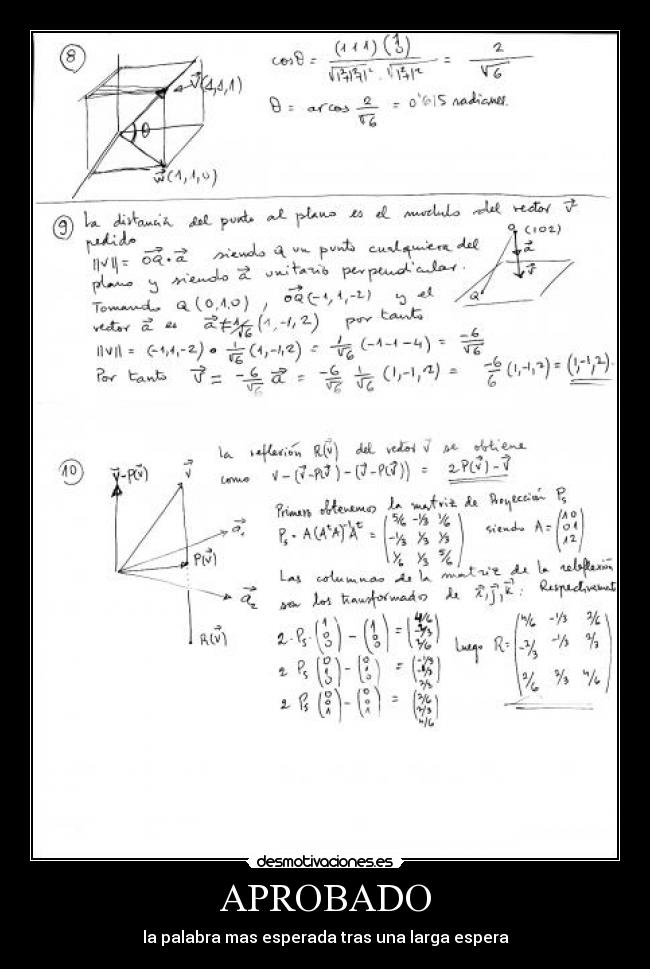 8
V(1,1,1)
θ
w(1,1,0)
cosθ = (1 1 1) (1 1 0) / √1²+1²+1² · √1²+1² = 2/√6
θ = arcos 2/√6 = 0'615 radianes.
9 La distancia del punto al plano es el modulo del vector v⃗
pedido
||v|| = OQ⃗ • a⃗ siendo Q un punto cualquiera del
plano y siendo a⃗ unitario perpendicular.
O (102)
a⃗
v⃗
Q
Tomando Q (0,1,0), OQ⃗(-1,1,-2) y el
vector a⃗ es a⃗ = 1/√6 (1,-1,2) por tanto
||v|| = (-1,1,-2) • 1/√6 (1,-1,2) = 1/√6 (-1-1-4) = -6/√6
Por tanto v⃗ = -6/√6 a⃗ = -6/√6 1/√6 (1,-1,2) = -6/6 (1,-1,2) = (1,-1,2).
10
v⃗-P(v⃗)
v⃗
a⃗₁
P(v⃗)
a⃗₂
R(v⃗)
La reflexión R(v⃗) del vector v⃗ se obtiene
como v-(v⃗-Pv⃗)-(v⃗-P(v⃗)) = 2P(v⃗)-v⃗
Primero obtenemos la matriz de Proyección Ps
Ps = A(AᵗA)⁻¹Aᵗ = (5/6 -1/3 1/6
-1/3 1/3 1/3
1/6 1/3 5/6) siendo A = (1 0
0 1
1 2)
Las columnas de la matriz de la
son los transformados de i⃗, j⃗, k⃗: Respectivament
2·Ps·(1 0 0) - (1 0 0) = (4/6 -2/3 2/6)
2 Ps (0 1 0) - (0 1 0) = (-1/3 2/3)
2 Ps (0 0 1) - (0 0 1) = (2/6 2/3 4/6)
Luego R = (4/6 -1/3 2/6
-2/3 -1/3 2/3
2/6 2/3 4/6)
desmotivaciones.es
APROBADO
la palabra mas esperada tras una larga espera